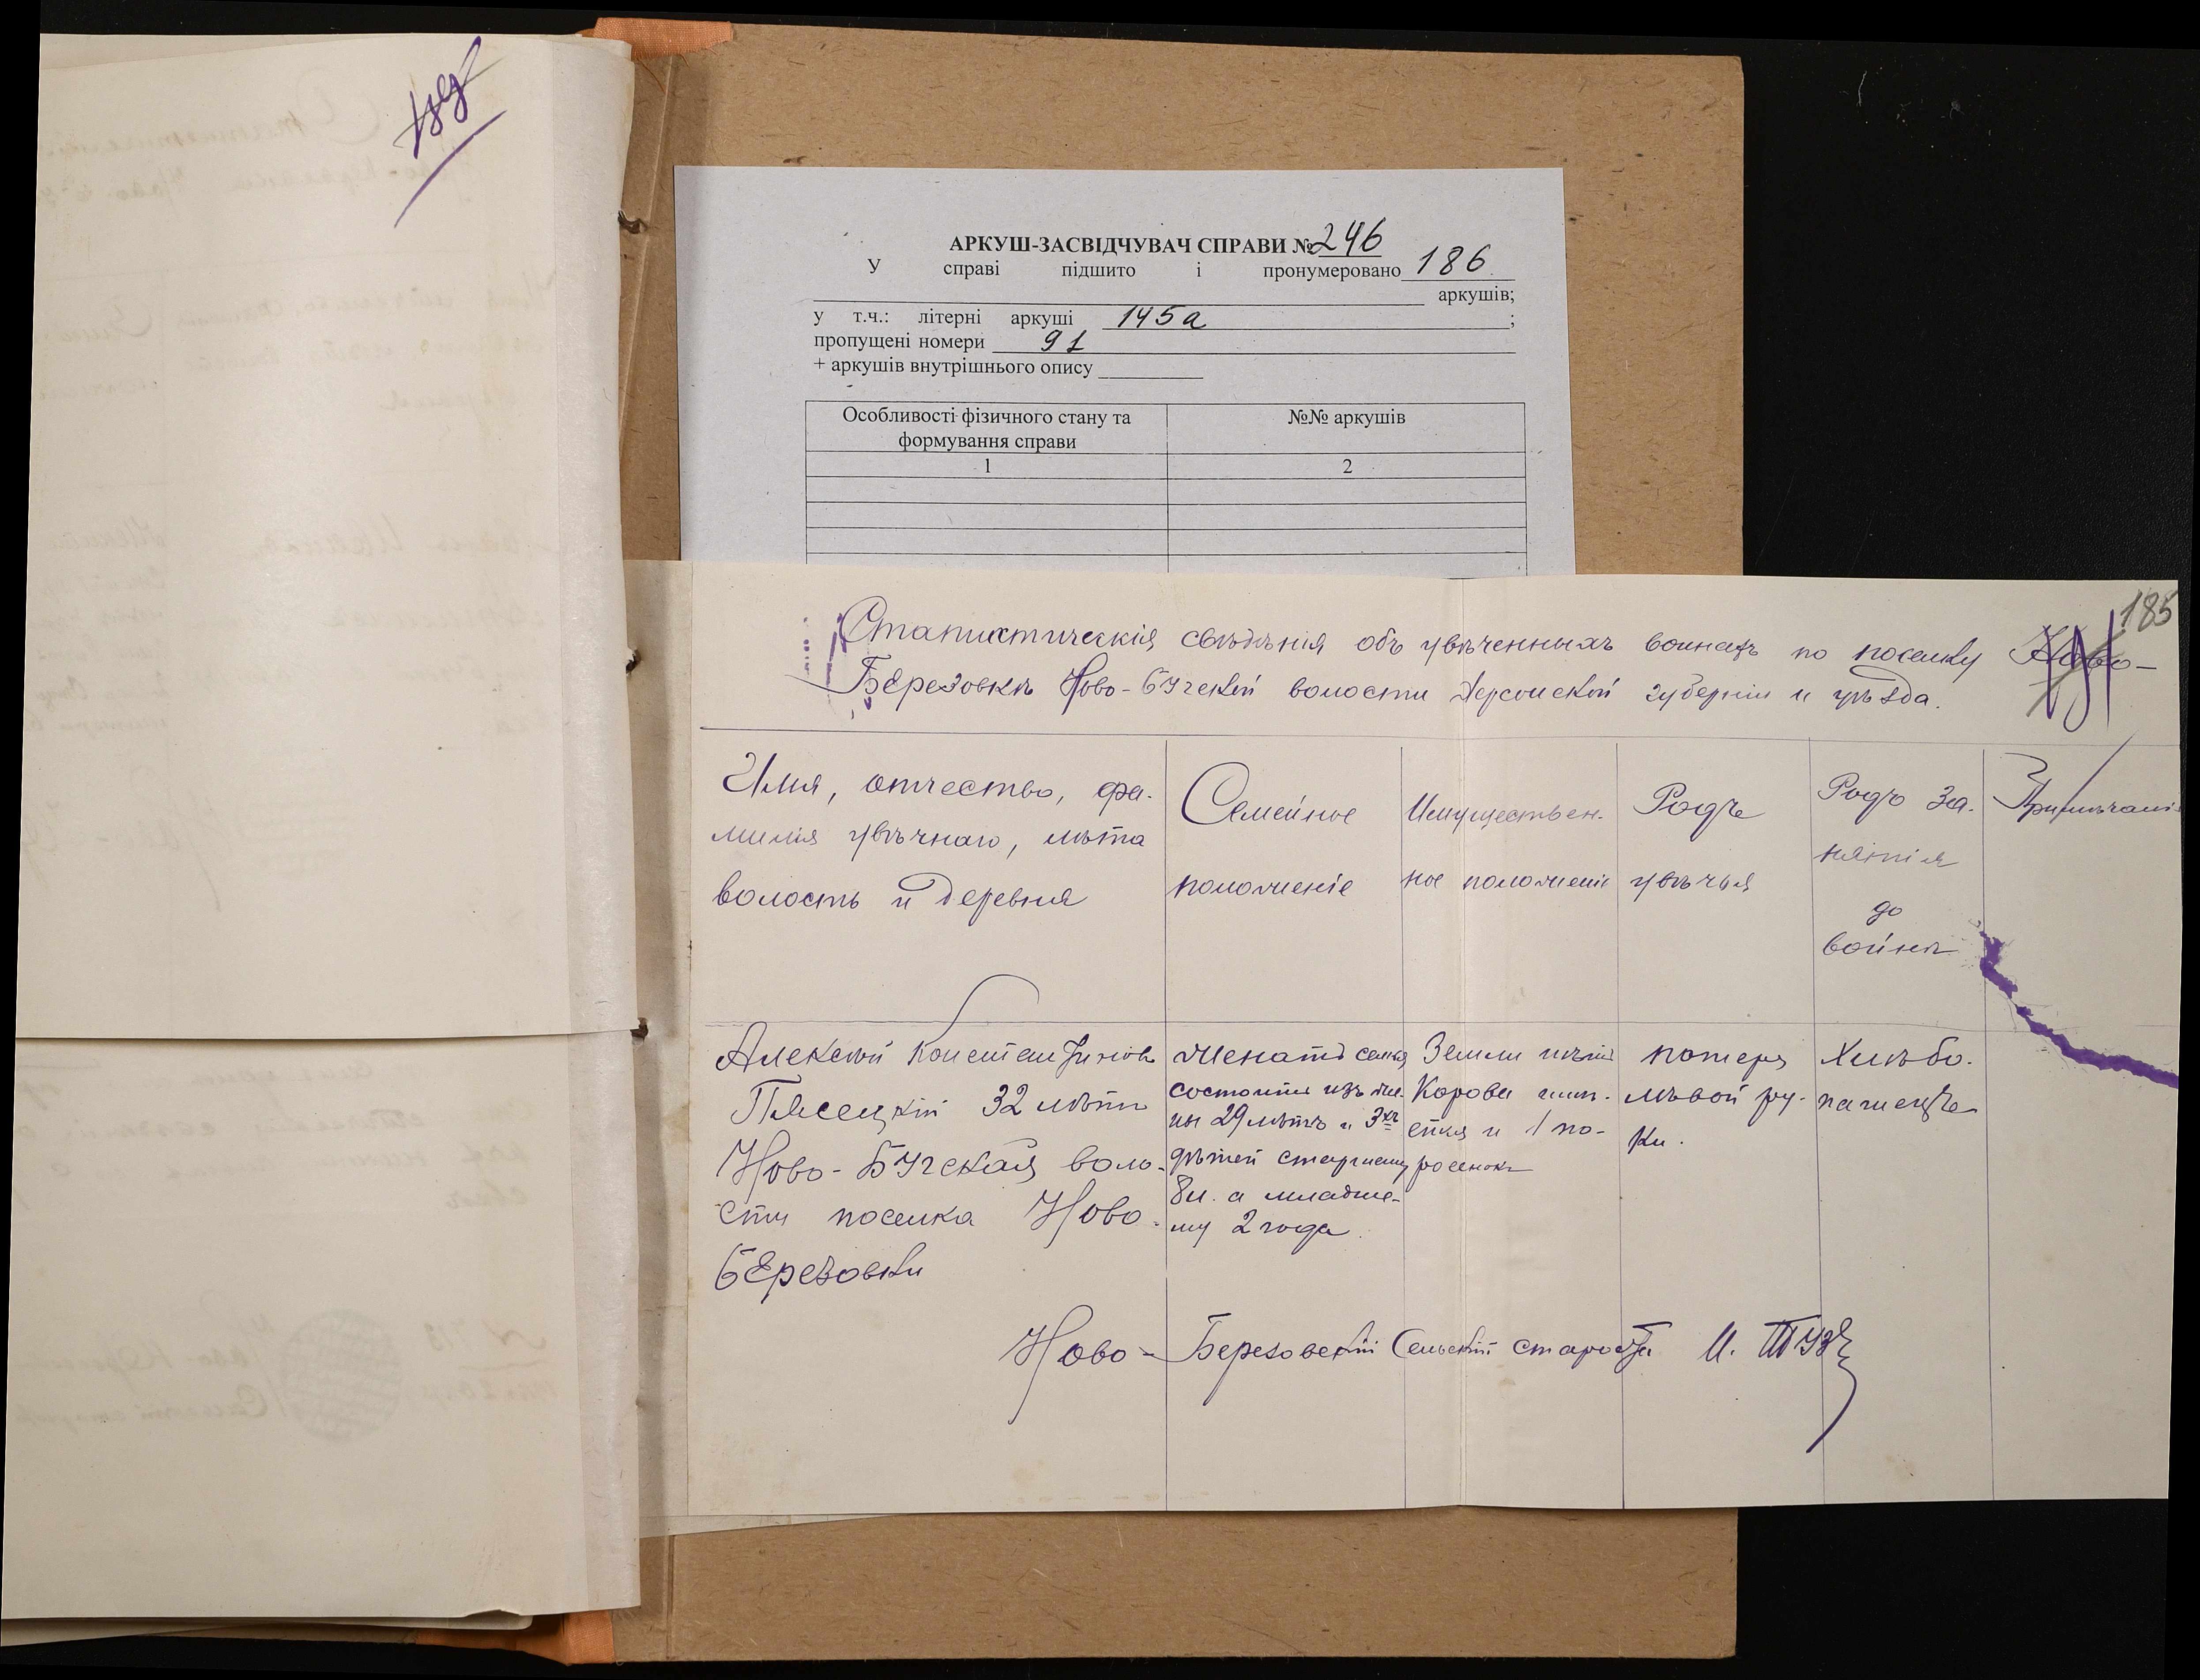 АРКУШ-ЗАСВІДЧУВАЧ СПРАВИ № 246
У справі підшито і пронумеровано 186
аркушів;
у т.ч.: літерні аркуші 145а ;
пропущені номери 91
+ аркушів внутрішнього опису
Особливості фізичного стану та формування справи
№№ аркушів
1
2
185
Статистическія свѣдѣнія объ увѣченныхъ воинахъ по поселку Ново-
Березовкѣ Ново-Бугской волости Херсонской губерніи и уѣзда.
Имя, отчество, фа-
милія увѣчнаго, лѣта
волость и деревня
Семейное
положеніе
Имуществен-
ное положеніе
Родъ
увѣчья
Родъ за-
нятія
до
войны
Примѣчаніе
Алексѣй Константиновъ
Пясецкій 32 лѣтъ
Ново-Бугская воло-
сти поселка Ново-
Березовки
Женатъ семья
состоитъ изъ же-
ны 29 лѣтъ и 3хъ
дѣтей старшему
8 л. а младше-
му 2 года.
Земли нѣтъ
Корова
и 1 по-
росенокъ
потеря
лѣвой ру-
ки.
Хлѣбо-
пашецъ
Ново-Березовскій Сельскій староста И. Тузъ